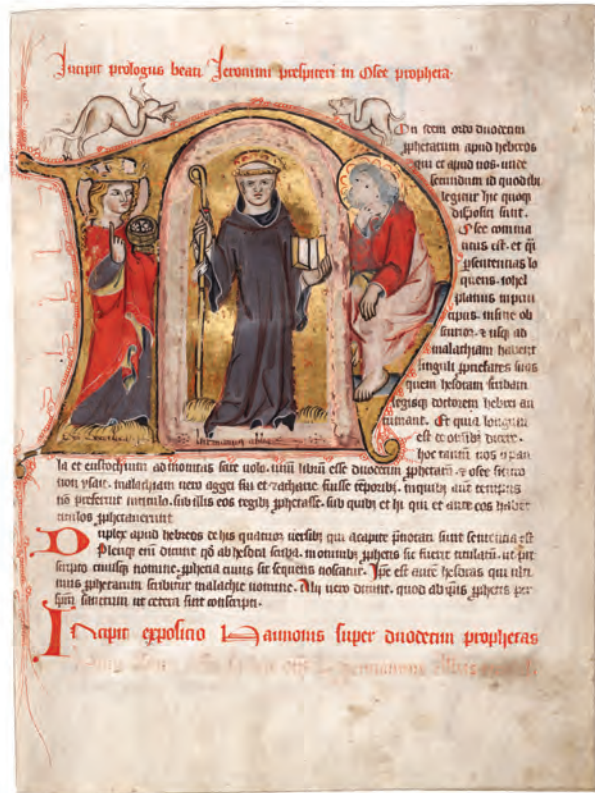 Incipit prologus beati Jeronimi presbiteri in Osee propheta.
on idem ordo duodecim
prophetarum apud hebreos
qui et apud nos. unde
secundum id quod ibi
legitur hic quoque
dispositi sunt.
Osee comma
ticus est. et quasi
per sententias lo
quens. Johel
planus in prin
cipiis. in fine ob
scurior. et usque ad
malachiam habent
singuli proprietates suas
quem hesdram scribam
legisque doctorem hebrei au
tumant. Et quia longum
est de omnibus dicere.
hoc tantum uos o pau
hermannus abbas
la et eustochium admonitas
esse uolo. unum librum esse duodecim prophetarum. et osee
non ysaie. malachiam uero aggei
fuisse temporibus. in quibus autem tempus
non prefertur in titulo. sub illis eos regibus prophetasse. sub quibus et hi qui et ante eos habent
titulos prophetauerunt
Duplex apud hebreos de his quatuor uersibus qui a capite prenotati sunt sententia est
dicunt quod ab hesdra scriba
nomine. prophetia cuius sit sequens noscatur. Ipse est autem hesdras qui ulti
mus prophetarum scribitur malachie nomine. Alii uero dicunt. quod ab ipsis prophetis per
spiritum sanctum ut cetera sint conscripti.
Incipit expositio Haimonis super duodecim prophetas